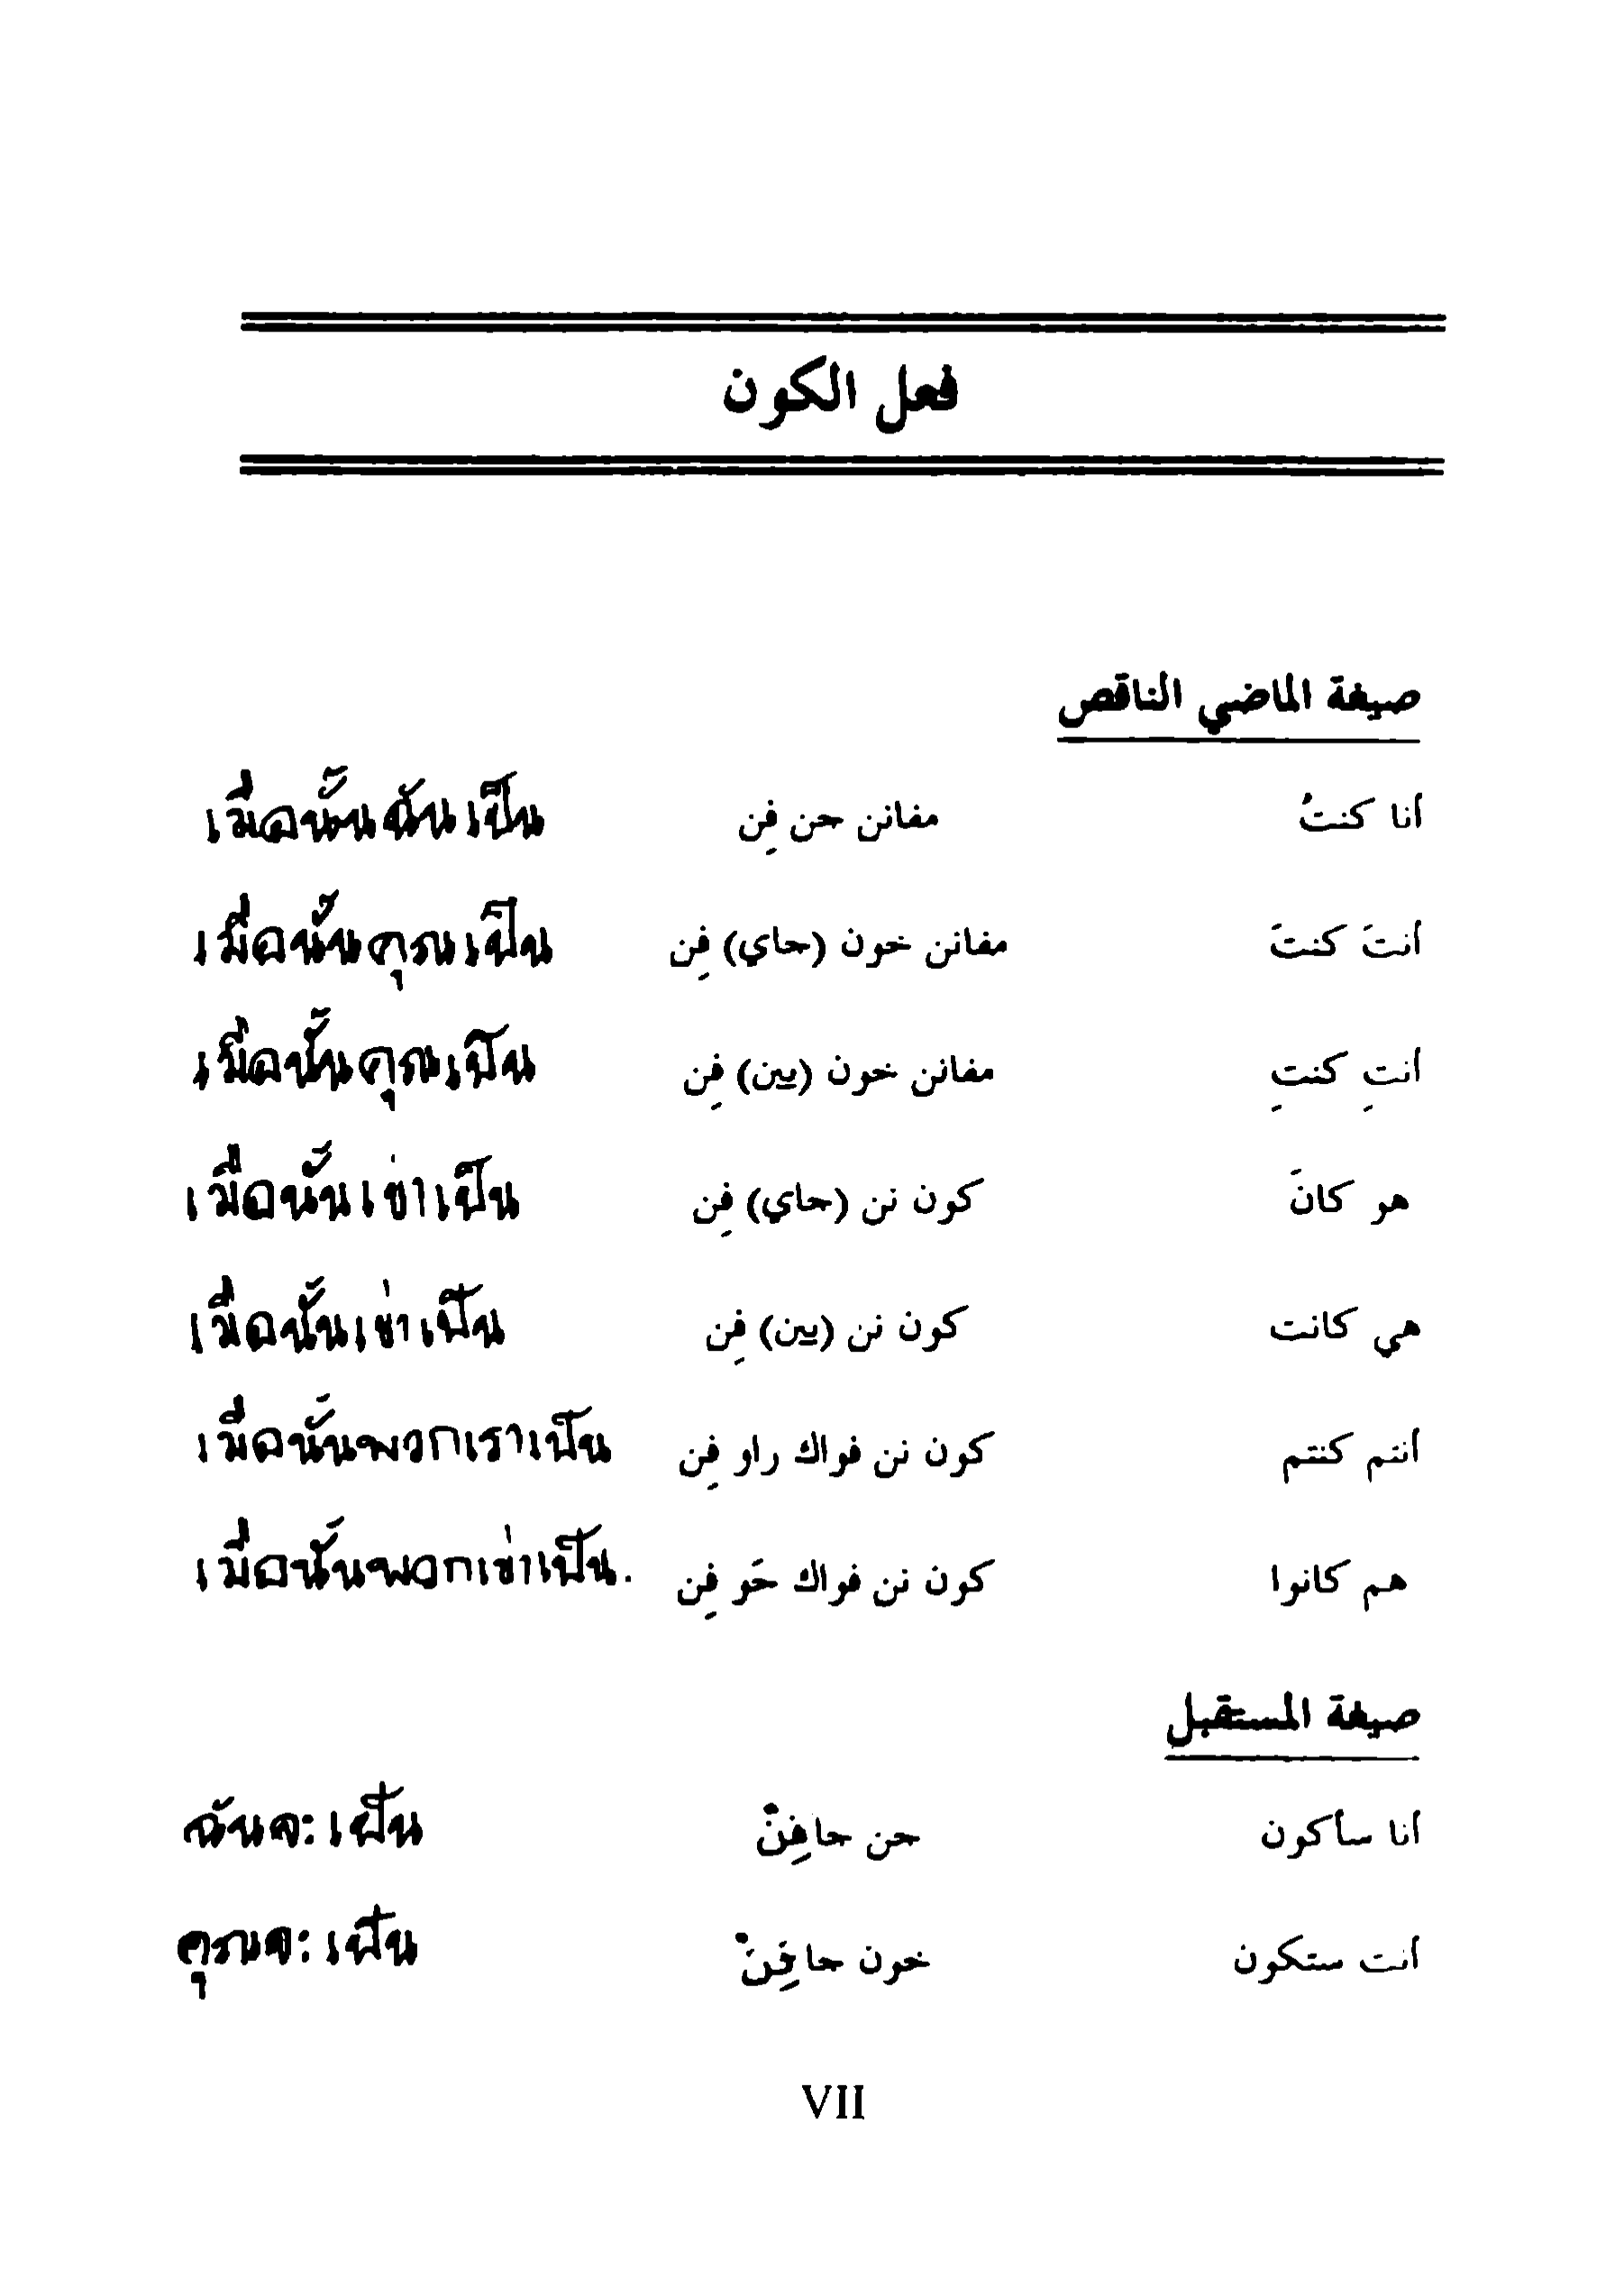 فعل الكون
صيغة الماضي الناقص
أنا كنتُ مفانن حن فِن เมื่อนั้นฉันเป็น
أنتَ كنتَ مفانن خون (جاي) فِن เมื่อนั้นคุณเป็น
أنتِ كنتِ مفانن خون (يين) فِن เมื่อนั้นคุณเป็น
هو كانَ كون نن (جاي) فِن เมื่อนั้นเข่าเป็น
هي كانت كون نن (يين) فِن เมื่อนั้นเข่าเป็น
أنتم كنتم كون نن فواك راو فِن เมื่อนั้นพวกเราเป็น
هم كانوا كون نن فواك خَو فِن เมื่อนั้นพวกเข่าเป็น.
صيغة المستقبل
أنا سأكون حن حا فِنْ ฉันจะเป็น
أنت ستكون خون حا فِنْ คุณจะเป็น
VII